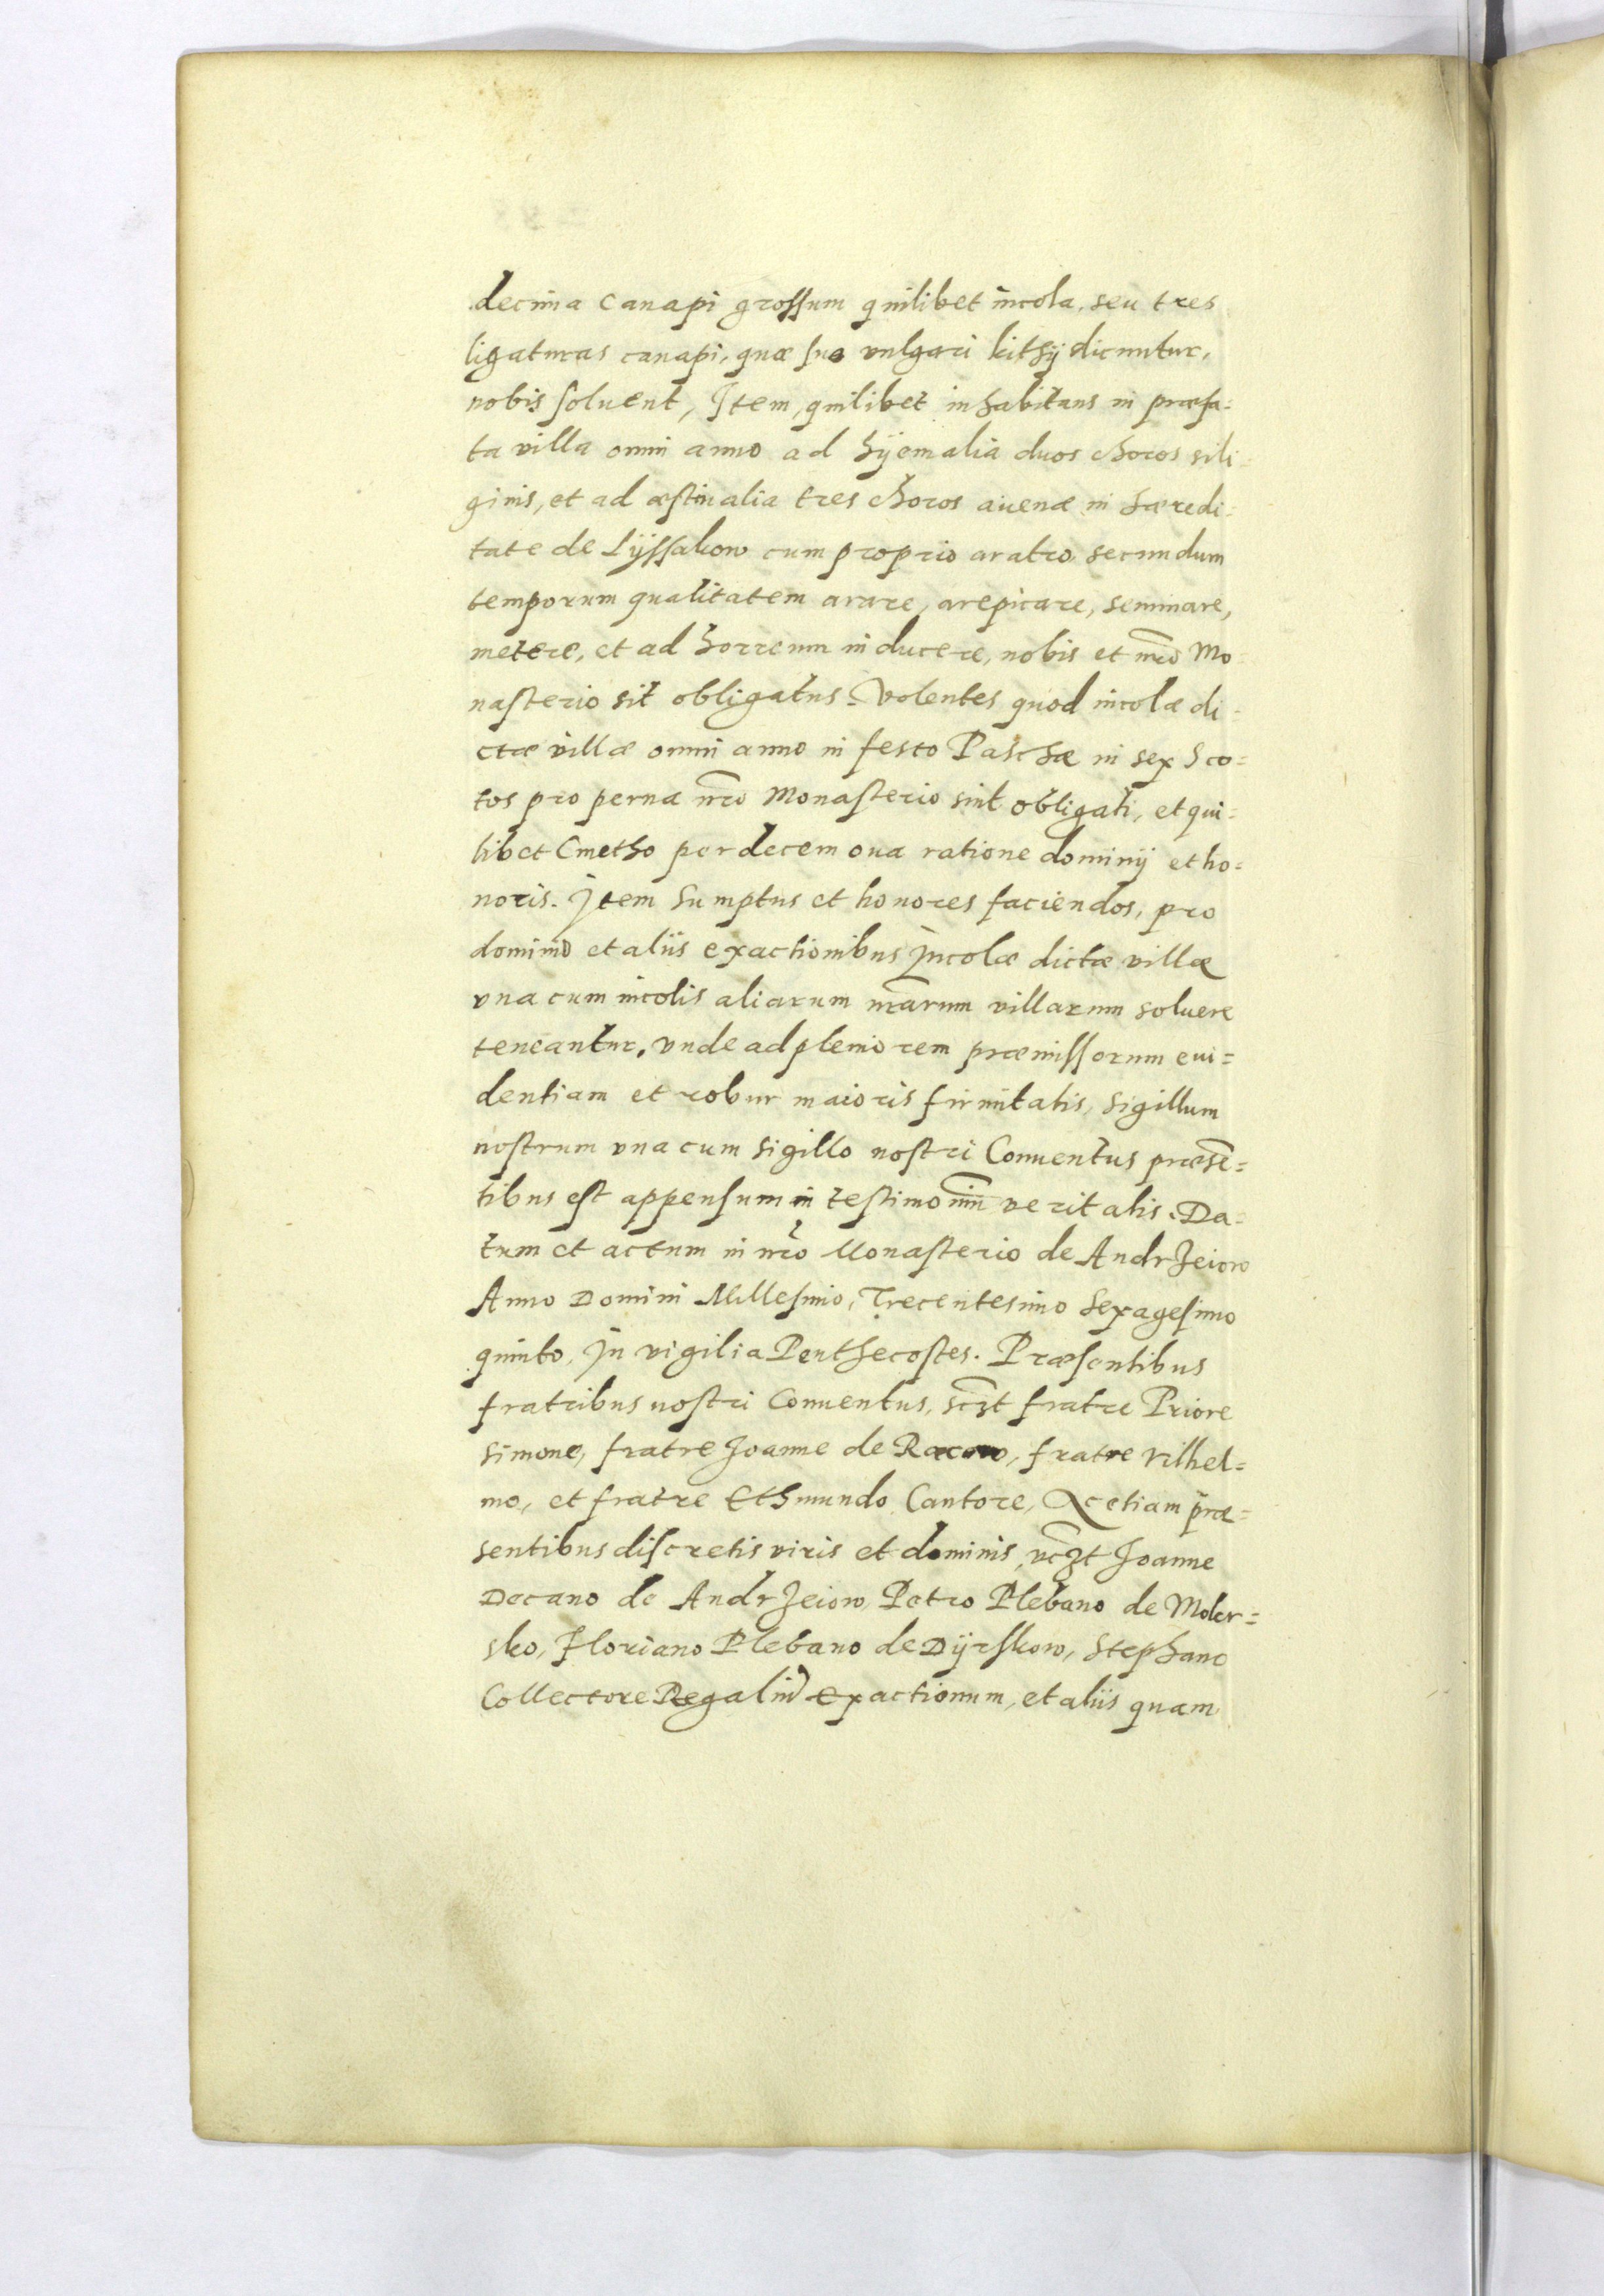 decima canapi grossum quilibet incola, seu tres
ligaturas canapi, quæ suo vulgari kithÿ dicuntur,
nobis soluent, Item, quilibet inhabitans in præfa=
ta villa omni anno ad hÿemalia duos choros sili=
ginis, et ad æstiualia tres choros auenæ in hæredi=
tate de Lÿssakow cum proprio aratro secundum
temporum qualitatem arare, arepicare, seminare,
metere, et ad horreum inducere, nobis et nr̃o Mo=
nasterio sit obligatus. Volentes quod incolæ di=
ctæ villæ omni anno in festo Paschæ in sex Sco=
tos pro perna nr̃o Monasterio sint obligati, et qui=
libet Cmetho per decem oua ratione dominij et ho=
noris. Item Sumptus et honores faciendos, pro
dominio et aliis exactionibus Incolæ dictæ villæ
vna cum incolis aliarum nr̃arum villarum soluere
teneantur. vnde ad pleniorem præmissorum eui=
dentiam et robur maioris firmitatis, sigillum
nostrum vna cum sigillo nostri Conuentus præsẽ=
tibus est appensum in testimoniũ veritatis. Da=
tum et actum in nr̃o Monasterio de Andrzeiow
Anno Domini Millesimo, Trecentesimo Sexagesimo
quinto, In vigilia Penthecostes. Præsentibus
fratribus nostri Conuentus, sc̃zt fratre Priore
Simone, fratre Joanne de Racow, fratre Vilhel=
mo, et fratre Ethmundo Cantore, Ac etiam præ=
sentibus discretis viris et dominis, vc̃zt Joanne
Decano de Andrzeiow, Petro Plebano de Mokr=
sko, Floriano Plebano de Dÿrskow, Stephano
Collectore Regaliũ Exactionum, et aliis quam